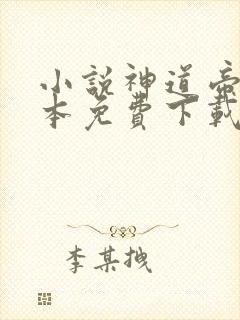 小説神道帝
本免費下載
李某拽